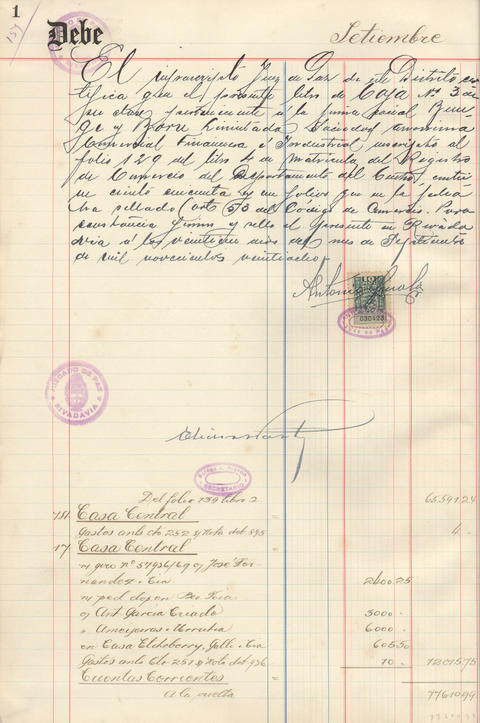 1
151
Debe
Setiembre
El infrascripto Juez de Paz de este Distrito cer
tifica que el presente libro de Caja Nº 3 
perteneciente á la firma social Bun
ge y Born Limitada Sociedad anonima
Comercial Financiera é Industrial inscripto al
folio 129 del libro 4 de Matrícula del Registro
de Comercio del Departamento del Centro, contie
ne ciento cincuenta y un folios que en la fecha
ha sellado (art 53 del Código de Comercio. Para
constancia firmo y sello el presente en Rivada
via á los veintiun dias del mes de Septiembre
de mil novecientos
Antonio
10
030423
JUZGADO DE PAZ
RIVADAVIA
SECRETARIO
Del folio 139 libro 2 65.591.24
15 Casa Central
Gastos ants cto 252 y Nota deb 895 4.-
17 Casa Central
n/ giro nº 57936/69 o/ José Fer-
nandez & Cia 2400.25
o/ Ant. García Criado 3000.-
" Ameijeiras & Urrutia 6000.-
en Casa Etcheberry, Gelli & Cia 605.50
Gastos ants Cto 251 y Nota deb 936 10.- 12015.75
Cuentas Corrientes
A la vuelta 77610.99